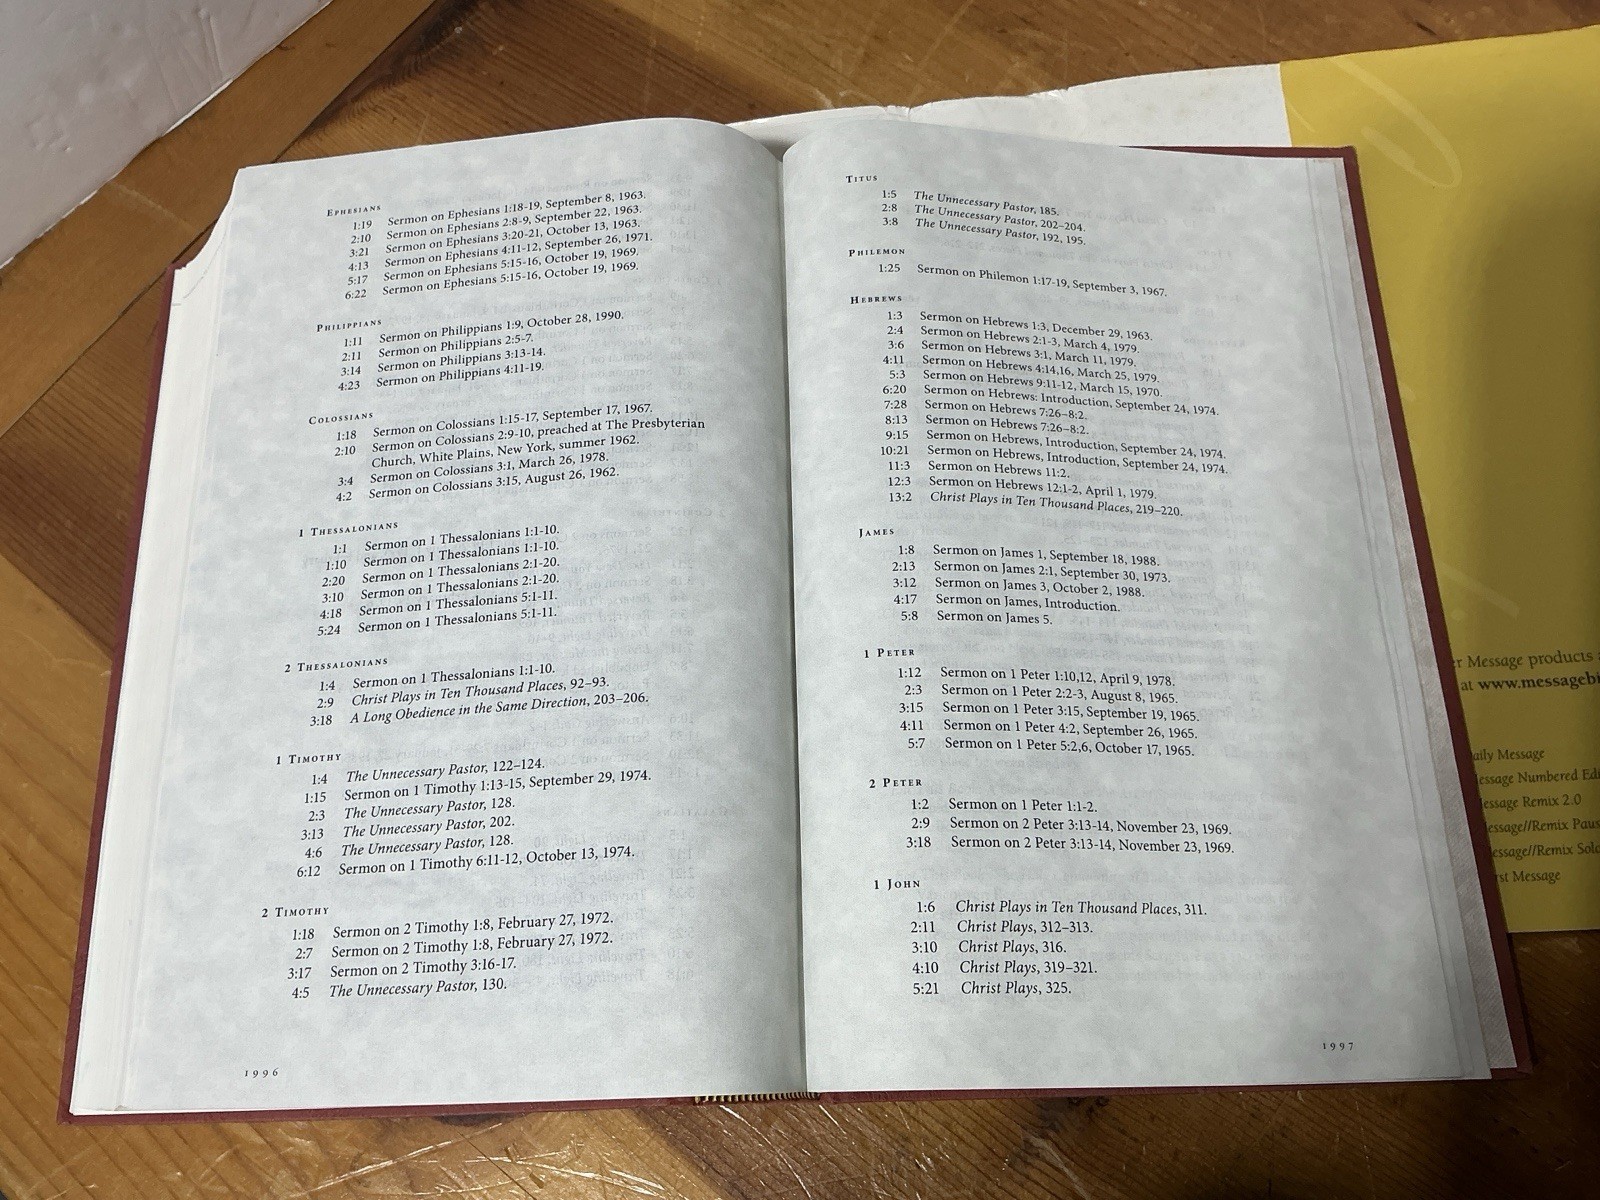 EPHESIANS
1:19 Sermon on Ephesians 1:18-19, September 8, 1963.
2:10 Sermon on Ephesians 2:8-9, September 22, 1963.
3:21 Sermon on Ephesians 3:20-21, October 13, 1963.
4:13 Sermon on Ephesians 4:11-12, September 26, 1971.
5:17 Sermon on Ephesians 5:15-16, October 19, 1969.
6:22 Sermon on Ephesians 5:15-16, October 19, 1969.
PHILIPPIANS
1:11 Sermon on Philippians 1:9, October 28, 1990.
2:11 Sermon on Philippians 2:5-7.
3:14 Sermon on Philippians 3:13-14.
4:23 Sermon on Philippians 4:11-19.
COLOSSIANS
1:18 Sermon on Colossians 1:15-17, September 17, 1967.
2:10 Sermon on Colossians 2:9-10, preached at The Presbyterian
Church, White Plains, New York, summer 1962.
3:4 Sermon on Colossians 3:1, March 26, 1978.
4:2 Sermon on Colossians 3:15, August 26, 1962.
1 THESSALONIANS
1:1 Sermon on 1 Thessalonians 1:1-10.
1:10 Sermon on 1 Thessalonians 1:1-10.
2:20 Sermon on 1 Thessalonians 2:1-20.
3:10 Sermon on 1 Thessalonians 2:1-20.
4:18 Sermon on 1 Thessalonians 5:1-11.
5:24 Sermon on 1 Thessalonians 5:1-11.
2 THESSALONIANS
1:4 Sermon on 1 Thessalonians 1:1-10.
2:9 Christ Plays in Ten Thousand Places, 92–93.
3:18 A Long Obedience in the Same Direction, 203–206.
1 TIMOTHY
1:4 The Unnecessary Pastor, 122–124.
1:15 Sermon on 1 Timothy 1:13-15, September 29, 1974.
2:3 The Unnecessary Pastor, 128.
3:13 The Unnecessary Pastor, 202.
4:6 The Unnecessary Pastor, 128.
6:12 Sermon on 1 Timothy 6:11-12, October 13, 1974.
2 TIMOTHY
1:18 Sermon on 2 Timothy 1:8, February 27, 1972.
2:7 Sermon on 2 Timothy 1:8, February 27, 1972.
3:17 Sermon on 2 Timothy 3:16-17.
4:5 The Unnecessary Pastor, 130.
1996
TITUS
1:5 The Unnecessary Pastor, 185.
2:8 The Unnecessary Pastor, 202–204.
3:8 The Unnecessary Pastor, 192, 195.
PHILEMON
1:25 Sermon on Philemon 1:17-19, September 3, 1967.
HEBREWS
1:3 Sermon on Hebrews 1:3, December 29, 1963.
2:4 Sermon on Hebrews 2:1-3, March 4, 1979.
3:6 Sermon on Hebrews 3:1, March 11, 1979.
4:11 Sermon on Hebrews 4:14,16, March 25, 1979.
5:3 Sermon on Hebrews 9:11-12, March 15, 1970.
6:20 Sermon on Hebrews: Introduction, September 24, 1974.
7:28 Sermon on Hebrews 7:26–8:2.
8:13 Sermon on Hebrews 7:26–8:2.
9:15 Sermon on Hebrews, Introduction, September 24, 1974.
10:21 Sermon on Hebrews, Introduction, September 24, 1974.
11:3 Sermon on Hebrews 11:2.
12:3 Sermon on Hebrews 12:1-2, April 1, 1979.
13:2 Christ Plays in Ten Thousand Places, 219–220.
JAMES
1:8 Sermon on James 1, September 18, 1988.
2:13 Sermon on James 2:1, September 30, 1973.
3:12 Sermon on James 3, October 2, 1988.
4:17 Sermon on James, Introduction.
5:8 Sermon on James 5.
1 PETER
1:12 Sermon on 1 Peter 1:10,12, April 9, 1978.
2:3 Sermon on 1 Peter 2:2-3, August 8, 1965.
3:15 Sermon on 1 Peter 3:15, September 19, 1965.
4:11 Sermon on 1 Peter 4:2, September 26, 1965.
5:7 Sermon on 1 Peter 5:2,6, October 17, 1965.
2 PETER
1:2 Sermon on 1 Peter 1:1-2.
2:9 Sermon on 2 Peter 3:13-14, November 23, 1969.
3:18 Sermon on 2 Peter 3:13-14, November 23, 1969.
1 JOHN
1:6 Christ Plays in Ten Thousand Places, 311.
2:11 Christ Plays, 312–313.
3:10 Christ Plays, 316.
4:10 Christ Plays, 319–321.
5:21 Christ Plays, 325.
1997
r Message products
at www.messageb
aily Message
essage Numbered Edi
essage Remix 2.0
essage//Remix Paus
essage//Remix Solo
rst Message